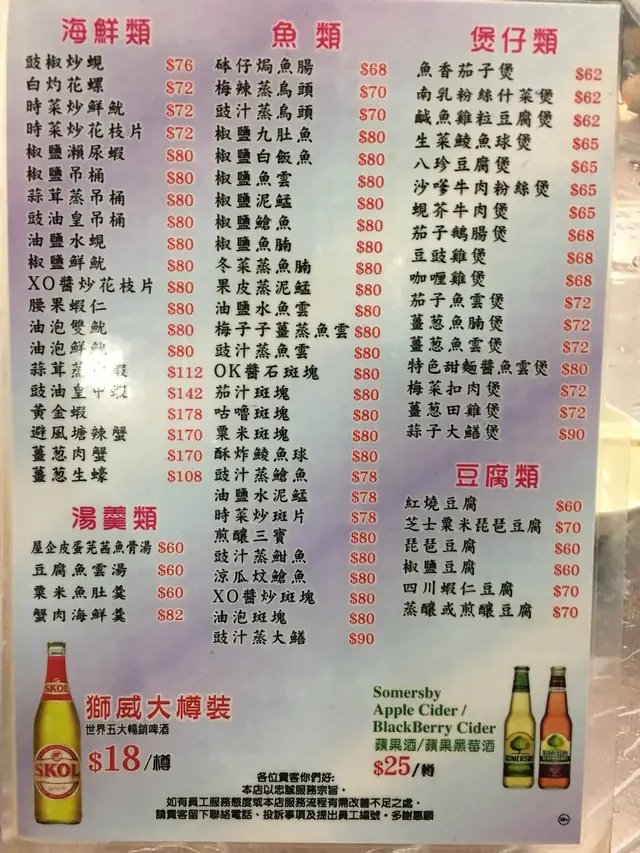 海鮮類
豉椒炒蜆 $76
白灼花螺 $72
時菜炒鮮魷 $72
時菜炒花枝片 $72
椒鹽瀨尿蝦 $80
椒鹽吊桶 $80
蒜茸蒸吊桶 $80
豉油皇吊桶 $80
油鹽水蜆 $80
椒鹽鮮魷 $80
XO醬炒花枝片 $80
腰果蝦仁 $80
油泡雙魷 $80
油泡鮮魷 $80
蒜茸蒸 蝦 $112
豉油皇中蝦 $142
黃金蝦 $178
避風塘辣蟹 $170
薑葱肉蟹 $170
薑葱生蠔 $108
湯羹類
屋企皮蛋芫茜魚骨湯 $60
豆腐魚雲湯 $60
粟米魚肚羹 $60
蟹肉海鮮羹 $82
魚類
砵仔焗魚腸 $68
梅辣蒸烏頭 $70
豉汁蒸烏頭 $70
椒鹽九肚魚 $80
椒鹽白飯魚 $80
椒鹽魚雲 $80
椒鹽泥鯭 $80
椒鹽鯧魚 $80
椒鹽魚腩 $80
冬菜蒸魚腩 $80
果皮蒸泥鯭 $80
油鹽水魚雲 $80
梅子子薑蒸魚雲 $80
豉汁蒸魚雲 $80
OK醬石斑塊 $80
茄汁斑塊 $80
咕嚕斑塊 $80
粟米斑塊 $80
酥炸鯪魚球 $80
豉汁蒸鯧魚 $78
油鹽水泥鯭 $78
時菜炒斑片 $78
煎釀三寶 $80
豉汁蒸鮒魚 $80
涼瓜炆鯧魚 $80
XO醬炒斑塊 $80
油泡斑塊 $80
豉汁蒸大鱔 $90
煲仔類
魚香茄子煲 $62
南乳粉絲什菜煲 $62
鹹魚雞粒豆腐煲 $62
生菜鯪魚球煲 $65
八珍豆腐煲 $65
沙嗲牛肉粉絲煲 $65
蜆芥牛肉煲 $65
茄子鵝腸煲 $68
豆豉雞煲 $68
咖喱雞煲 $68
茄子魚雲煲 $72
薑葱魚腩煲 $72
薑葱魚雲煲 $72
特色甜麵醬魚雲煲 $80
梅菜扣肉煲 $72
薑葱田雞煲 $72
蒜子大鱔煲 $90
豆腐類
紅燒豆腐 $60
芝士粟米琵琶豆腐 $70
琵琶豆腐 $60
椒鹽豆腐 $60
四川蝦仁豆腐 $70
蒸釀或煎釀豆腐 $70
SKOL
SKOL
獅威大樽裝
世界五大暢銷啤酒
$18/樽
Somersby
Apple Cider /
BlackBerry Cider
蘋果酒/蘋果黑莓酒
$25/樽
SOMERSBY
SOMERSBY
各位貴客你們好:
本店以忠誠服務宗旨,
如有員工服務態度或本店服務流程有需改善不足之處,
請貴客留下聯絡電話、投訴事項及提出員工編號。多謝惠顧
18+